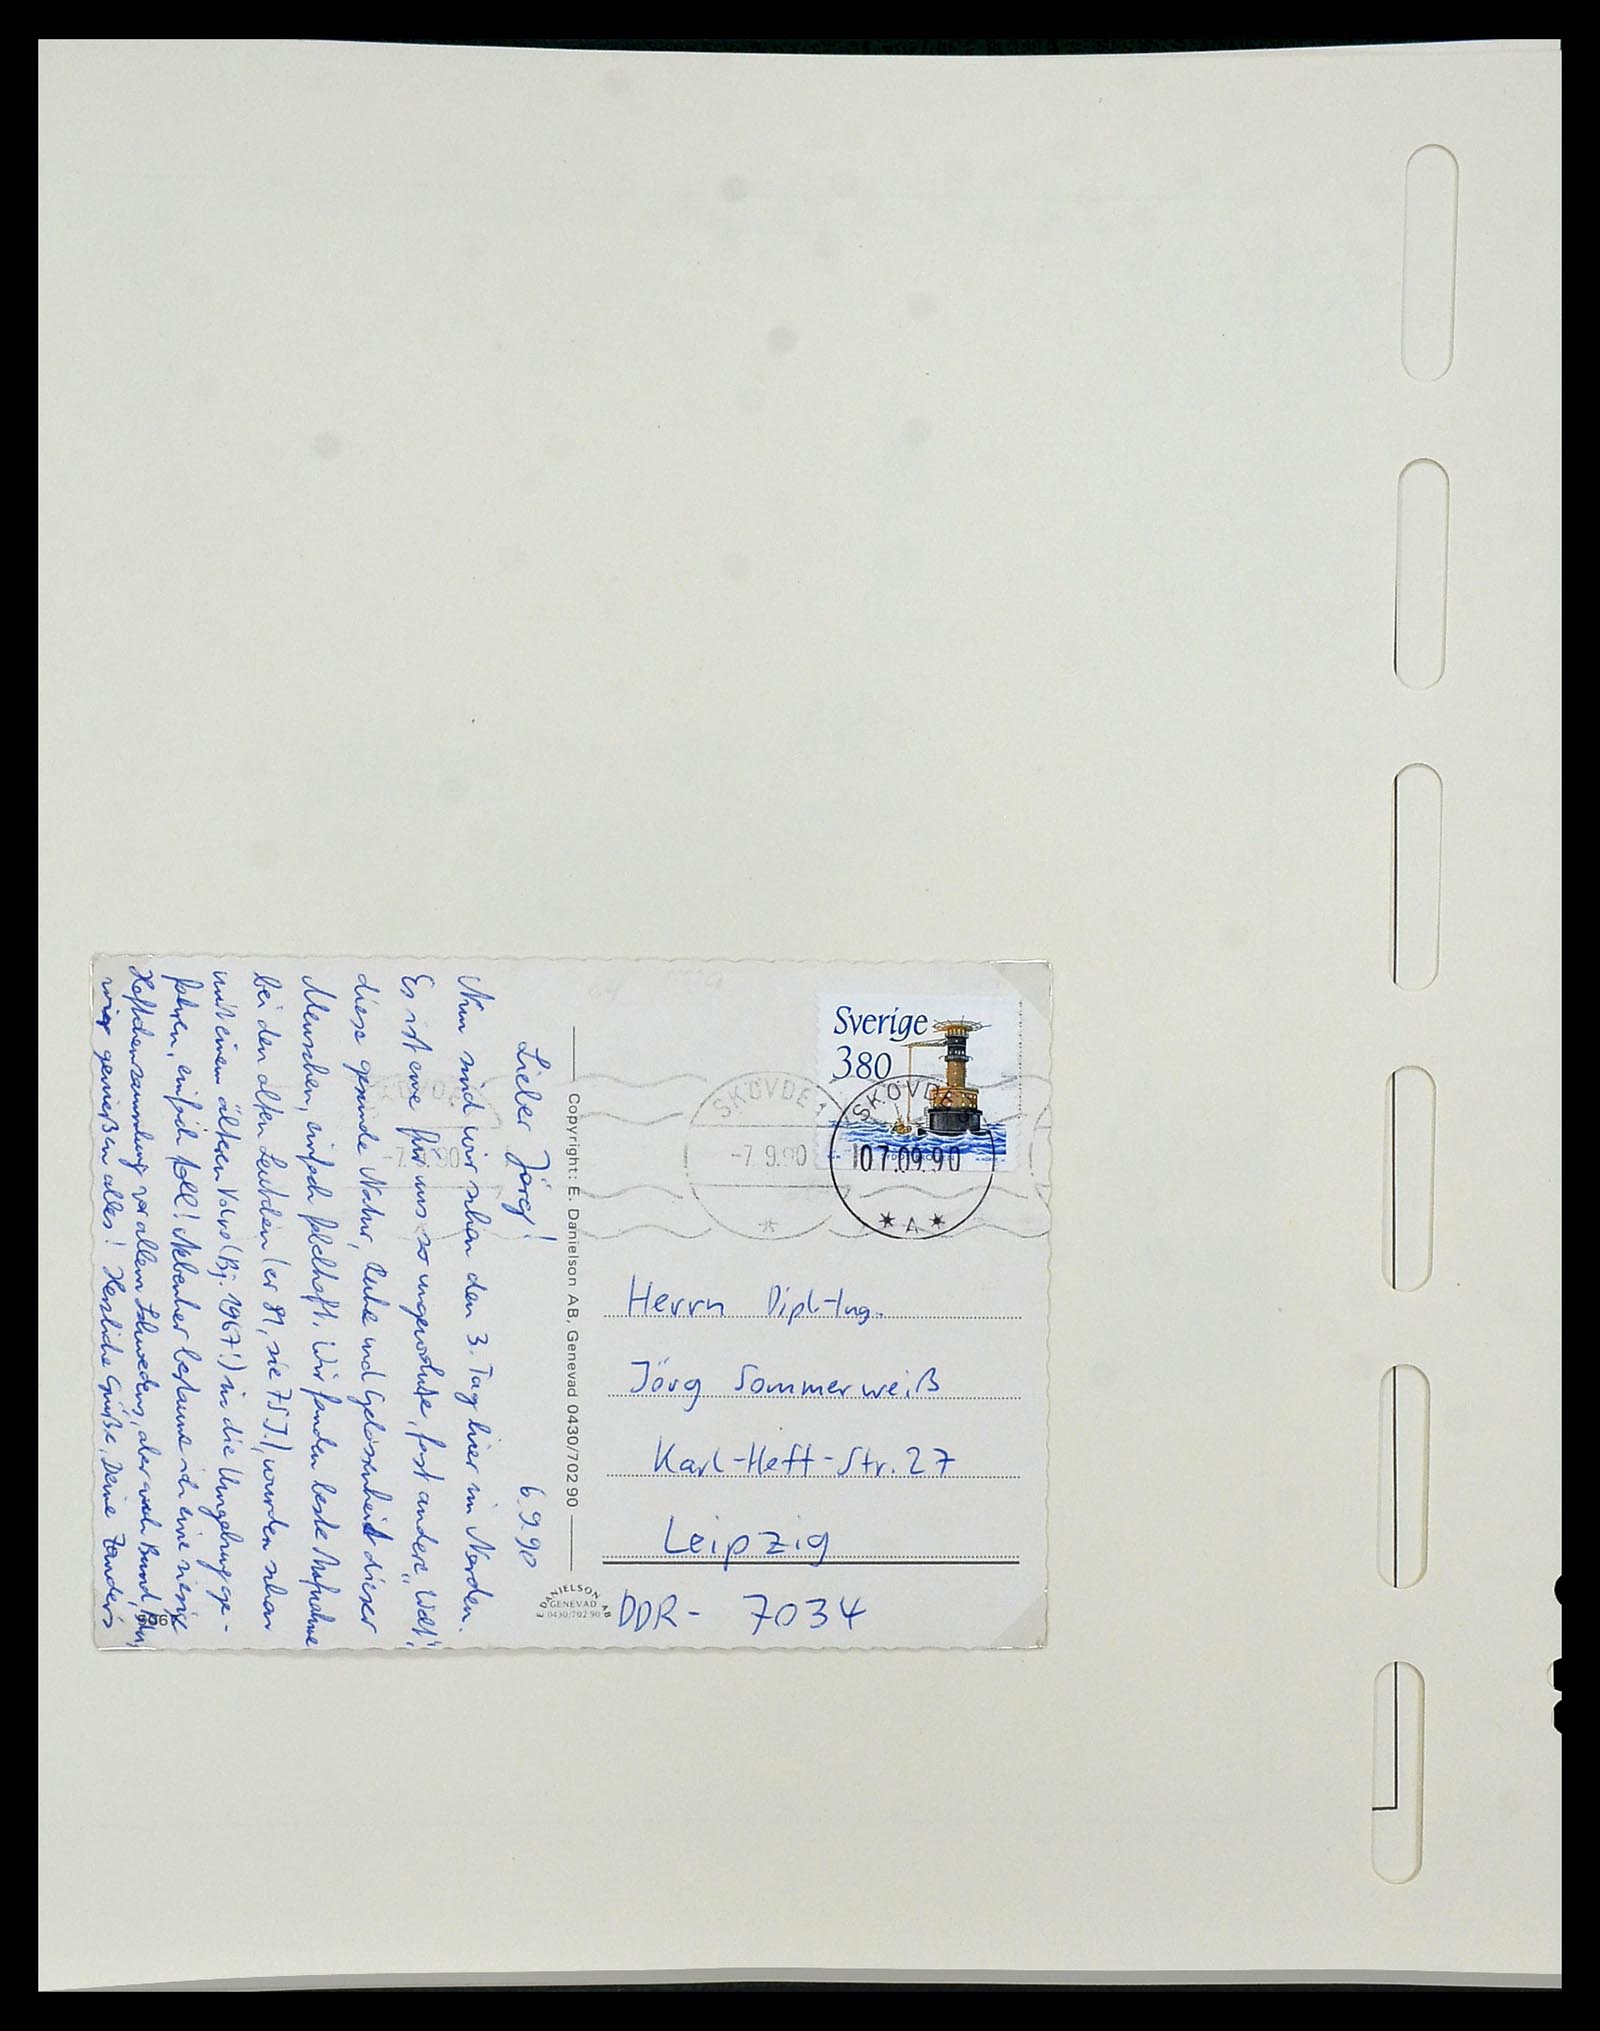 Lieber Jörg!
6.9.90
Nun sind wir schon den 3. Tag hier im Norden.
Es ist eine für uns so ungewohnte, fast andere „Welt",
diese gesunde Natur, Ruhe und Gelassenheit dieser
Menschen, einfach fabelhaft. Wir fanden beste Aufnahme
bei den alten Leutchen (er 81, sie 75 J.) wurden schon
mit einem älteren Volvo (Bj. 1967!) in die Umgebung ge-
fahren, einfach toll! Nebenher bestaune ich eine riesige
Heftchensammlung vor allem Schweden, aber auch Bund,
wir genießen alles! Herzliche Grüße, Deine
906
Copyright: E. Danielson AB, Genevad 0430/702 90
E. DANIELSON AB
GENEVAD
0430/702 90
Sverige
380
SKÖVDE
07.09.90
* A *
SKÖVDE 1
-7 9.90
SKÖVDE
-7. 9.90
Herrn Dipl-Ing.
Jörg Sommerweiß
Karl-Heft-Str. 27
Leipzig
DDR- 7034